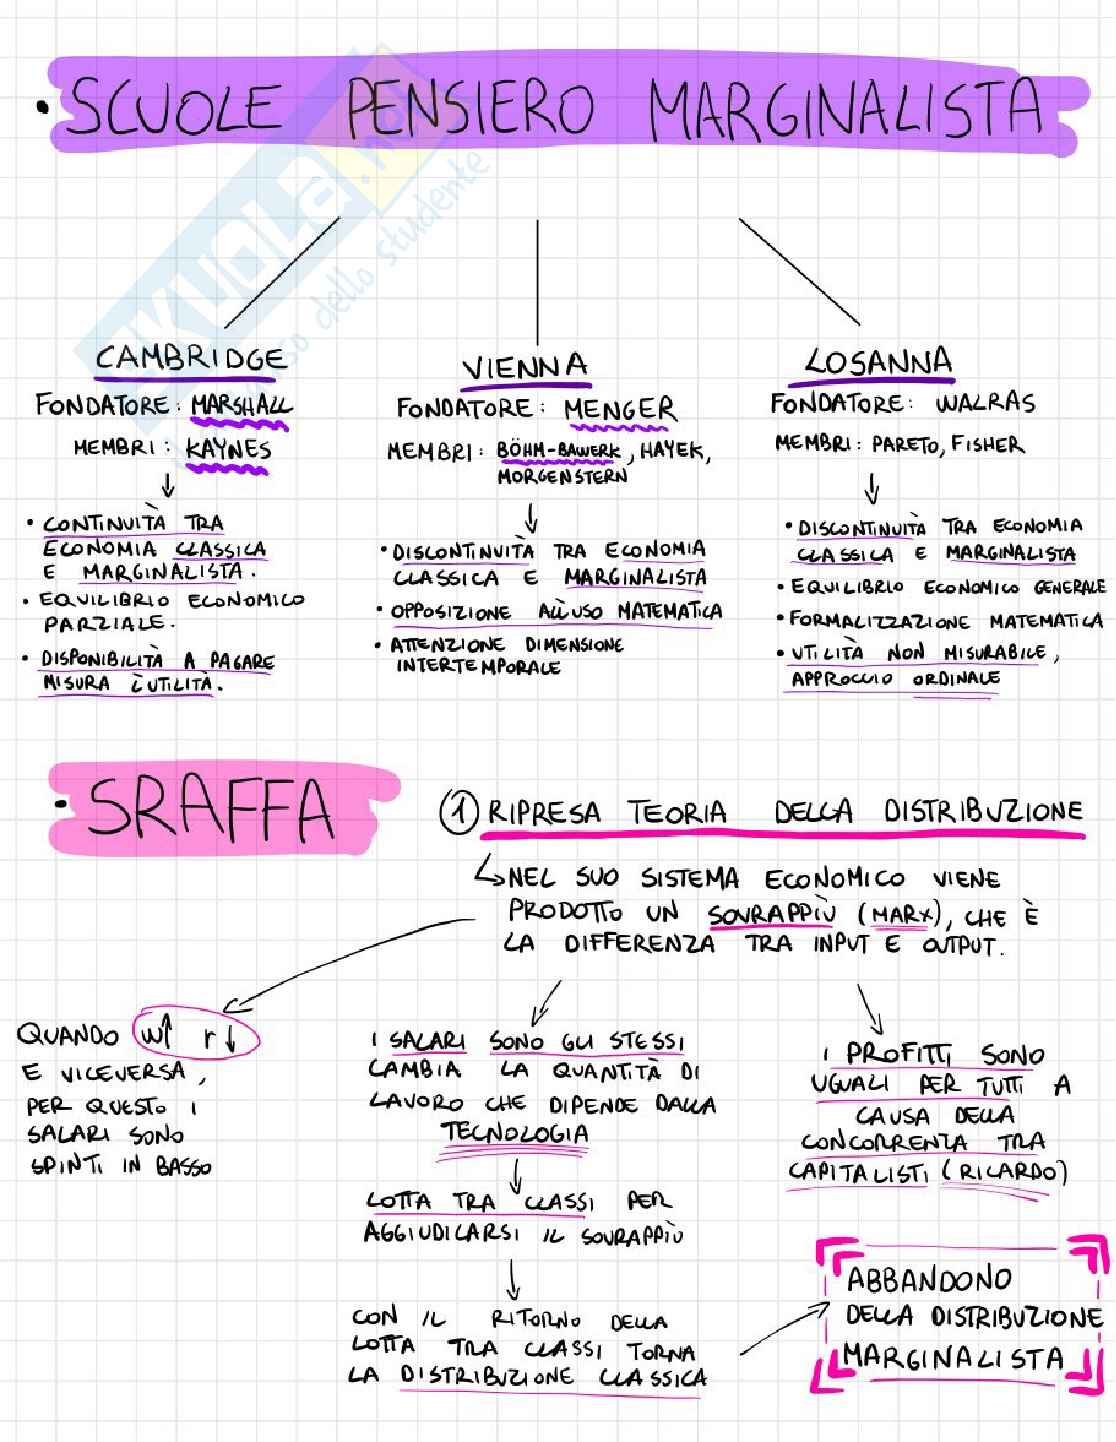 • SCUOLE PENSIERO MARGINALISTA
SKUOLA.net
dello studente
CAMBRIDGE
FONDATORE: MARSHALL
MEMBRI: KAYNES
• CONTINUITÀ TRA
ECONOMIA CLASSICA
E MARGINALISTA.
• EQUILIBRIO ECONOMICO
PARZIALE.
• DISPONIBILITÀ A PAGARE
MISURA L'UTILITÀ.
VIENNA
FONDATORE: MENGER
MEMBRI: BÖHM-BAWERK, HAYEK,
MORGENSTERN
• DISCONTINUITÀ TRA ECONOMIA
CLASSICA E MARGINALISTA
• OPPOSIZIONE ALL'USO MATEMATICA
• ATTENZIONE DIMENSIONE
INTERTEMPORALE
LOSANNA
FONDATORE: WALRAS
MEMBRI: PARETO, FISHER
• DISCONTINUITÀ TRA ECONOMIA
CLASSICA E MARGINALISTA
• EQUILIBRIO ECONOMICO GENERALE
• FORMALIZZAZIONE MATEMATICA
• UTILITÀ NON MISURABILE,
APPROCCIO ORDINALE
• SRAFFA
① RIPRESA TEORIA DELLA DISTRIBUZIONE
↳ NEL SUO SISTEMA ECONOMICO VIENE
PRODOTTO UN SOVRAPPIÙ (MARX), CHE È
LA DIFFERENZA TRA INPUT E OUTPUT.
QUANDO w↑ r↓
E VICEVERSA,
PER QUESTO I
SALARI SONO
SPINTI IN BASSO
I SALARI SONO GLI STESSI
CAMBIA LA QUANTITÀ DI
LAVORO CHE DIPENDE DALLA
TECNOLOGIA
LOTTA TRA CLASSI PER
AGGIUDICARSI IL SOVRAPPIÙ
CON IL RITORNO DELLA
LOTTA TRA CLASSI TORNA
LA DISTRIBUZIONE CLASSICA
I PROFITTI SONO
UGUALI PER TUTTI A
CAUSA DELLA
CONCORRENZA TRA
CAPITALISTI (RICARDO)
ABBANDONO
DELLA DISTRIBUZIONE
MARGINALISTA